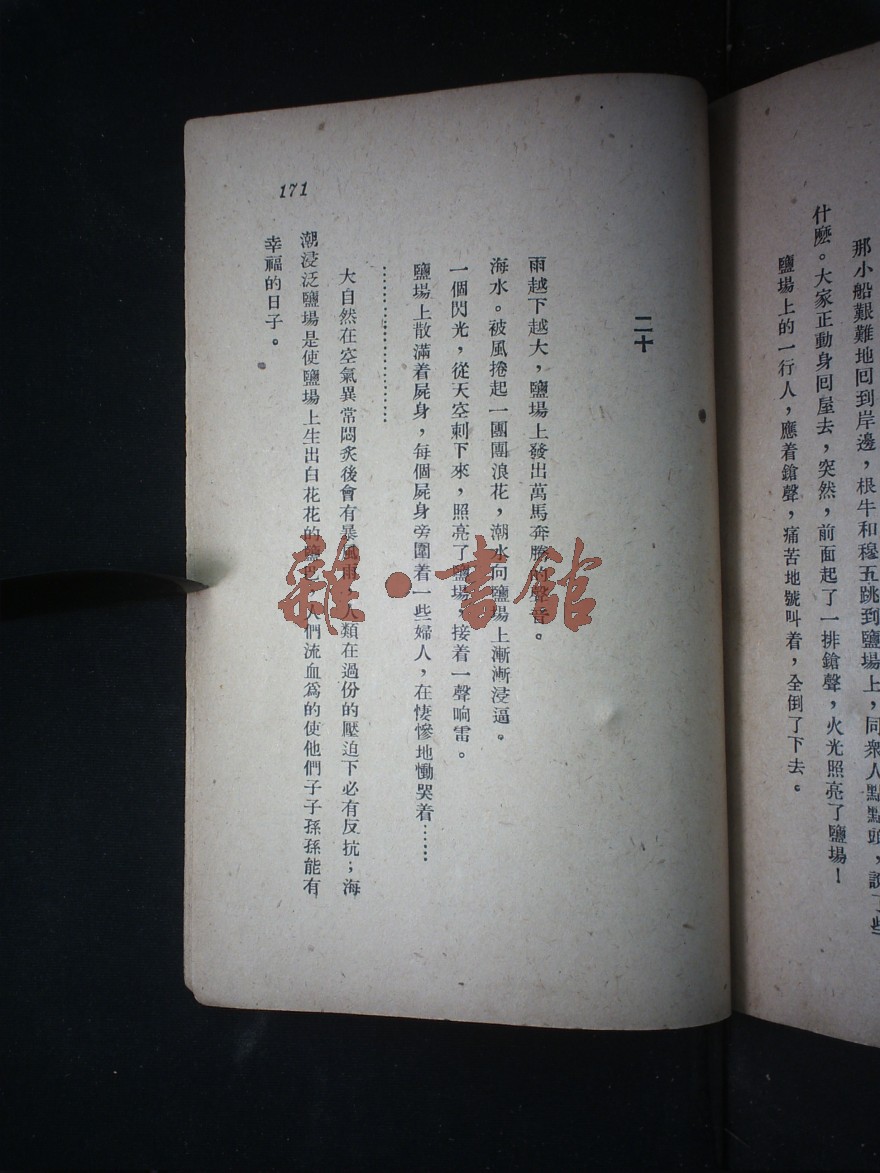 那小船艱難地囘到岸邊，根牛和穆五跳到鹽場上，同衆人點點頭，說了些
什麽。大家正動身囘屋去，突然，前面起了一排鎗聲，火光照亮了鹽場！
鹽場上的一行人，應着鎗聲，痛苦地號叫着，全倒了下去。
二十
雨越下越大，鹽場上發出萬馬奔騰的聲音。
海水。被風捲起一團團浪花，潮水向鹽場上漸漸浸逼。
一個閃光，從天空刺下來，照亮了鹽場，接着一聲响雷。
鹽場上散滿着屍身，每個屍身旁圍着一些婦人，在悽慘地慟哭着……
……………………
大自然在空氣異常悶炙後會有暴風雨，人類在過份的壓迫下必有反抗；海
潮浸泛鹽場是使鹽場上生出白花花的人們流血爲的使他們子子孫孫能有
幸福的日子。
171
雜·書館